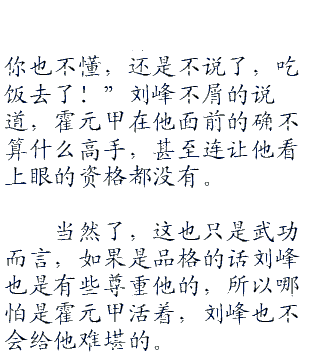 你也不懂，还是不说了，吃
饭去了！”刘峰不屑的说
道，霍元甲在他面前的确不
算什么高手，甚至连让他看
上眼的资格都没有。
当然了，这也只是武功
而言，如果是品格的话刘峰
也是有些尊重他的，所以哪
怕是霍元甲活着，刘峰也不
会给他难堪的。